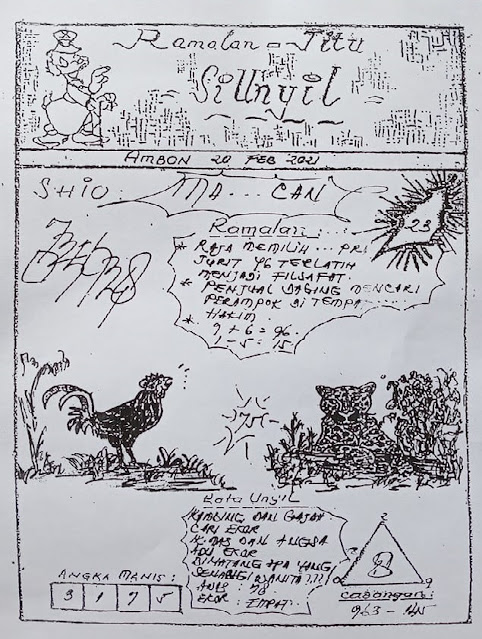 Ramalan - Jitu
Si Unyil
AMBON 20 FEB 2021
SHIO : MA... CAN
23
Ramalan :
* RAJA MEMILIH ... PRI
JURIT YG TERLATIH
MENJADI FILSAFAT.
* PENJUAL DAGING MENCARI
PERAMPOK DI TEMPAT
* HAKIM
9 + 6 = 96.
1 - 5 = 15
75
Kata Unyil
KAMBING DAN GAJAH
CARI EKOR
DAN ANGSA
ADU EKOR
BINATANG APA YANG
WANITA ???
EKOR : EMPAT.
ANGKA MANIS :
3 1 7 5
8
Cabangan :
963 - 45